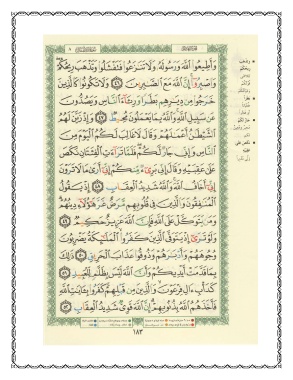 وَأَطِيعُوا۟ ٱللَّهَ وَرَسُولَهُۥ وَلَا تَنَٰزَعُوا۟ فَتَفْشَلُوا۟ وَتَذْهَبَ رِيحُكُمْ
وَٱصْبِرُوٓا۟ إِنَّ ٱللَّهَ مَعَ ٱلصَّٰبِرِينَ ٤٦ وَلَا تَكُونُوا۟ كَٱلَّذِينَ
خَرَجُوا۟ مِن دِيَٰرِهِم بَطَرًا وَرِئَآءَ ٱلنَّاسِ وَيَصُدُّونَ
عَن سَبِيلِ ٱللَّهِ وَٱللَّهُ بِمَا يَعْمَلُونَ مُحِيطٌ ٤٧ وَإِذْ زَيَّنَ لَهُمُ
ٱلشَّيْطَٰنُ أَعْمَٰلَهُمْ وَقَالَ لَا غَالِبَ لَكُمُ ٱلْيَوْمَ مِنَ
ٱلنَّاسِ وَإِنِّى جَارٌ لَّكُمْ فَلَمَّا تَرَآءَتِ ٱلْفِئَتَانِ نَكَصَ
عَلَىٰ عَقِبَيْهِ وَقَالَ إِنِّى بَرِىٓءٌ مِّنكُمْ إِنِّىٓ أَرَىٰ مَا لَا تَرَوْنَ
إِنِّىٓ أَخَافُ ٱللَّهَ وَٱللَّهُ شَدِيدُ ٱلْعِقَابِ ٤٨ إِذْ يَقُولُ
ٱلْمُنَٰفِقُونَ وَٱلَّذِينَ فِى قُلُوبِهِم مَّرَضٌ غَرَّ هَٰٓؤُلَآءِ دِينُهُمْ
وَمَن يَتَوَكَّلْ عَلَى ٱللَّهِ فَإِنَّ ٱللَّهَ عَزِيزٌ حَكِيمٌ ٤٩
وَلَوْ تَرَىٰٓ إِذْ يَتَوَفَّى ٱلَّذِينَ كَفَرُوا۟ ٱلْمَلَٰٓئِكَةُ يَضْرِبُونَ
وُجُوهَهُمْ وَأَدْبَٰرَهُمْ وَذُوقُوا۟ عَذَابَ ٱلْحَرِيقِ ٥٠ ذَٰلِكَ
بِمَا قَدَّمَتْ أَيْدِيكُمْ وَأَنَّ ٱللَّهَ لَيْسَ بِظَلَّٰمٍ لِّلْعَبِيدِ ٥١
كَدَأْبِ ءَالِ فِرْعَوْنَ وَٱلَّذِينَ مِن قَبْلِهِمْ كَفَرُوا۟ بِـَٔايَٰتِ ٱللَّهِ
فَأَخَذَهُمُ ٱللَّهُ بِذُنُوبِهِمْ إِنَّ ٱللَّهَ قَوِىٌّ شَدِيدُ ٱلْعِقَابِ ٥٢
١٨٣